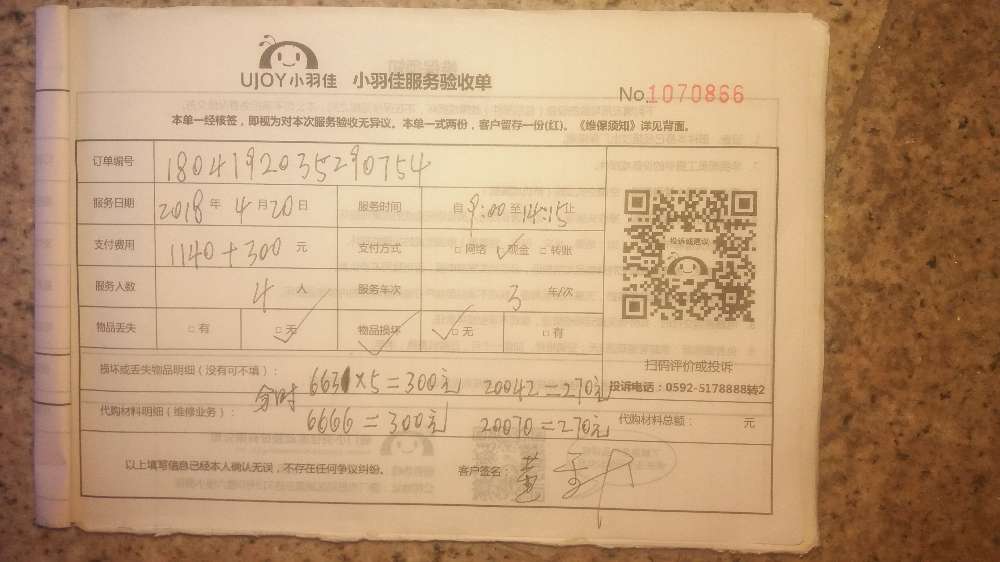 UJOY小羽佳 小羽佳服务验收单
No.1070866
本单一经核签，即视为对本次服务验收无异议。本单一式两份，客户留存一份(红)。《维保须知》详见背面。
订单编号 1804192035290754
服务日期 2018年4月20日 服务时间 自9:00至14:15止
支付费用 1140+300元 支付方式 □网络 ✓现金 □转账
投诉或建议
服务人数 4人 服务年次 3年/次
物品丢失 □有 □无✓ 物品损坏✓ ✓□无 □有
扫码评价或投诉
损坏或丢失物品明细（没有可不填）：
分时 663 ×5=300元 20042=270元
投诉电话：0592-5178888转2
代购材料明细（维修业务）： 6666=300元 20070=270元 代购材料总额： 元
以上填写信息已经本人确认无误，不存在任何争议纠纷。 客户签名：